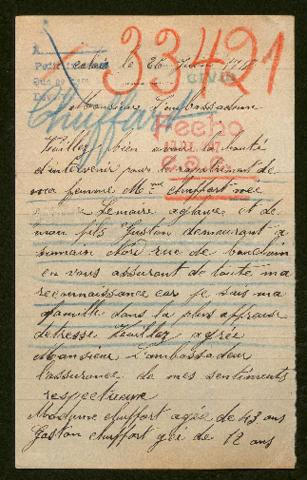 33421
le 26 Juin 1918
CIVIL
Monsieur l'ambassadeur
Chuffart
Fecho
Veuillez bien avoir la bonté
d'intervenir pour le rapatriement de
ma femme Mme chuffart née
Lemaire et de
mon fils Gaston demeurant a
nord rue de bouchain
en vous assurant de toute ma
reconnaissance car je sais ma
famille dans la plus affreuse
detresse Veuillez agrée
Monsieur L'ambassadeur
l'assurance de mes sentiments
respectueuse
Madame chuffart agée de 43 ans
Gaston chuffart de 12 ans